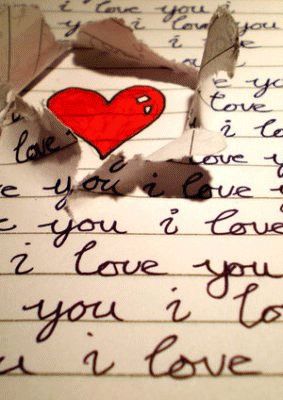 i love you i
i love
you
love
i lo
love
i love y
e you i love y
e you i love
i love you
you i lo
u i love